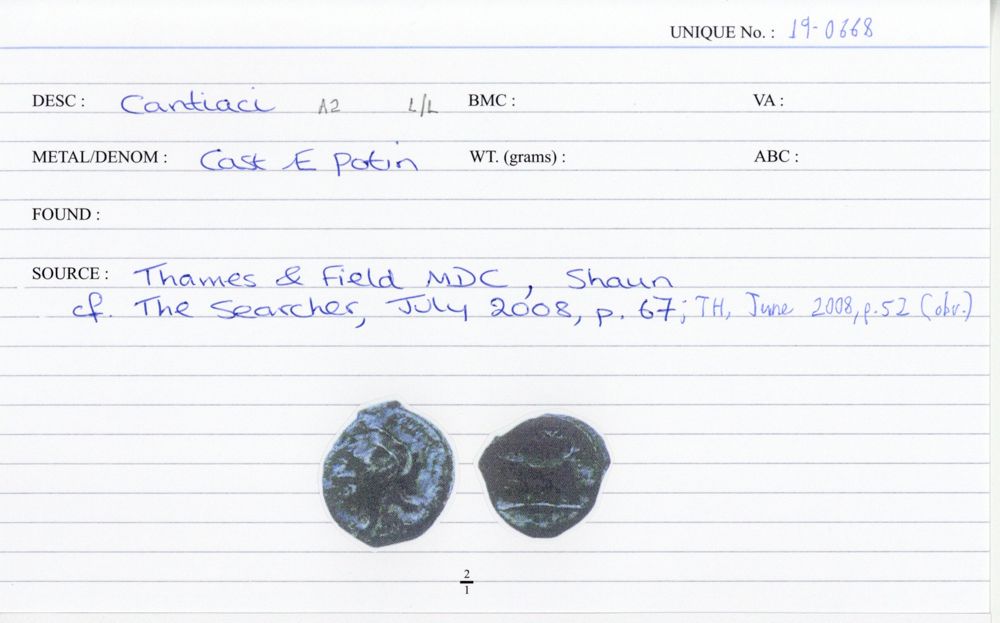 UNIQUE No. : 19-0668
DESC : Cantiaci A2 L/L BMC : VA :
METAL/DENOM : Cast Æ Potin WT. (grams) : ABC :
FOUND :
SOURCE : Thames & Field MDC, Shaun
cf. The Searcher, July 2008, p. 67; TH, June 2008, p.52 (obv.)
2
1